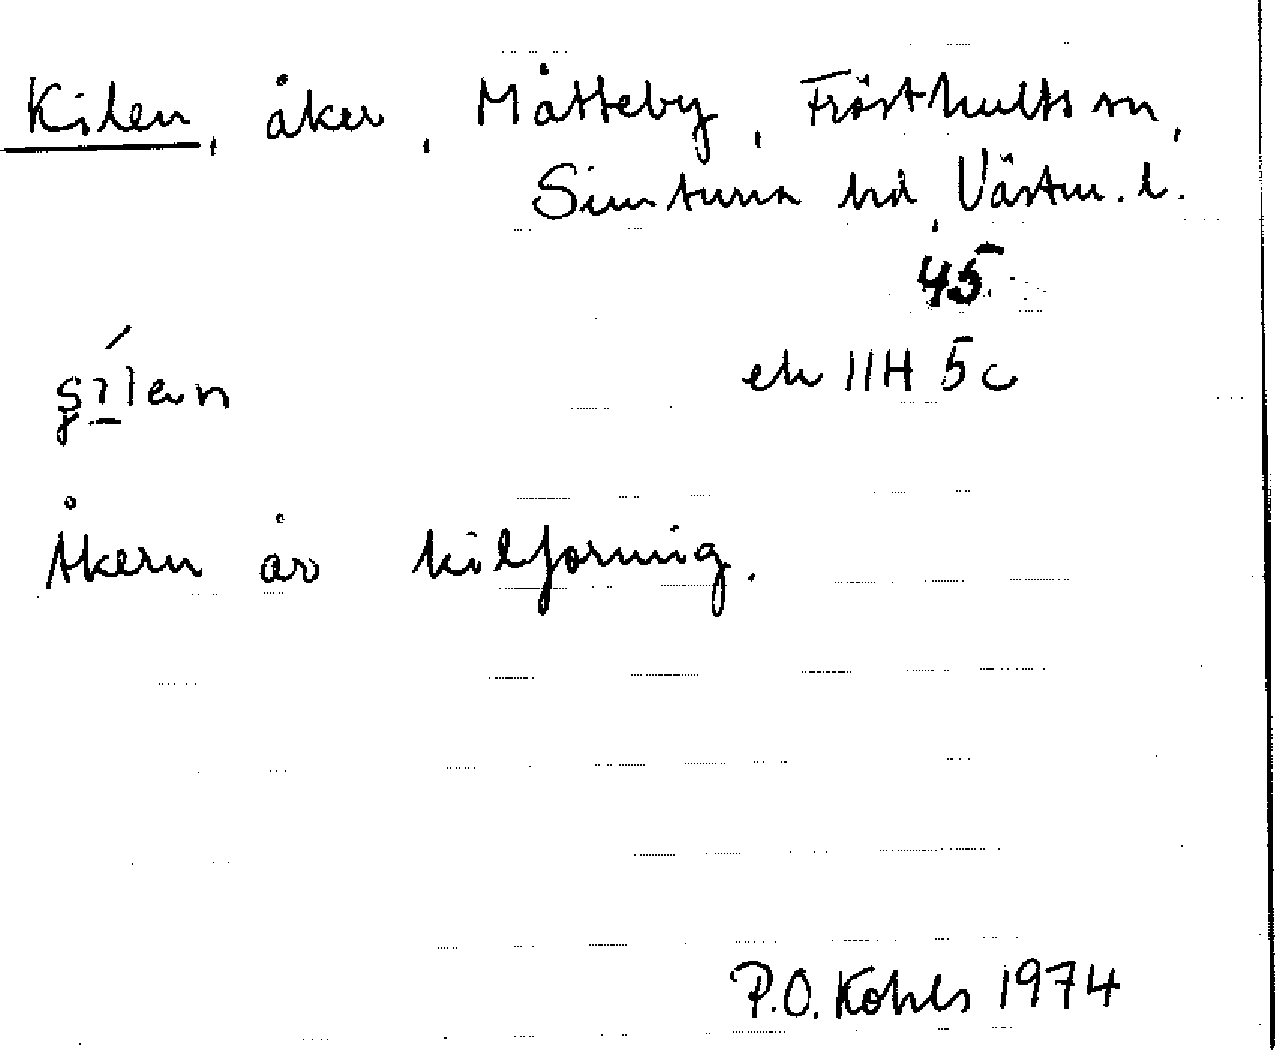 Kilen, åker, Måtteby, Frösthults sn,
Simtuna hd, Västm. l.
45
ek 11H 5c
Åkern är kilformig.
P.O. Kohls 1974